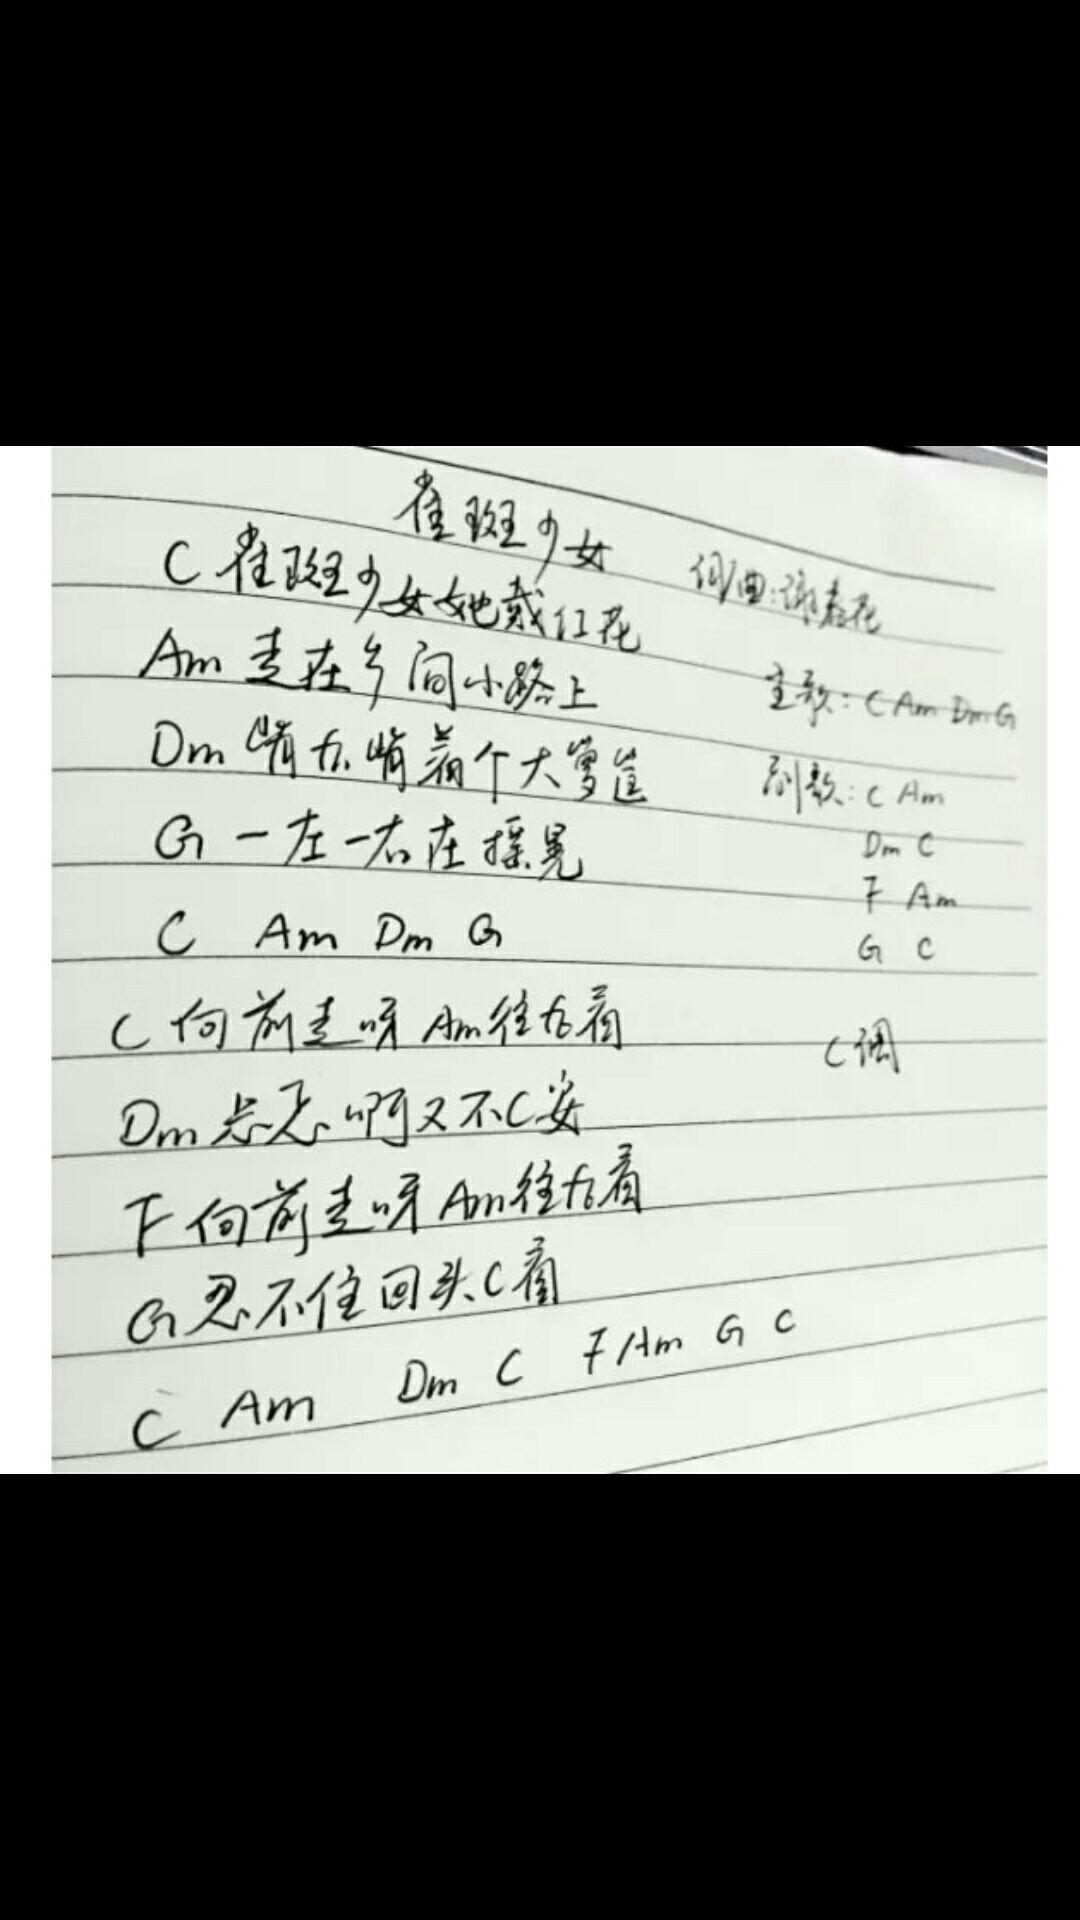 雀斑少女
词曲:谢春花
C 雀斑少女她戴红花
主歌: C Am Dm G
Am 走在乡间小路上
Dm 着个大箩筐
副歌: C Am
G 一左一右在摇晃
Dm C
F Am
C Am Dm G
G C
C 向前走呀 Am往右看
C调
Dm 忐忑啊又不C安
F 向前走呀 Am往右看
G 忍不住回头C看
C Am Dm C F Am G C